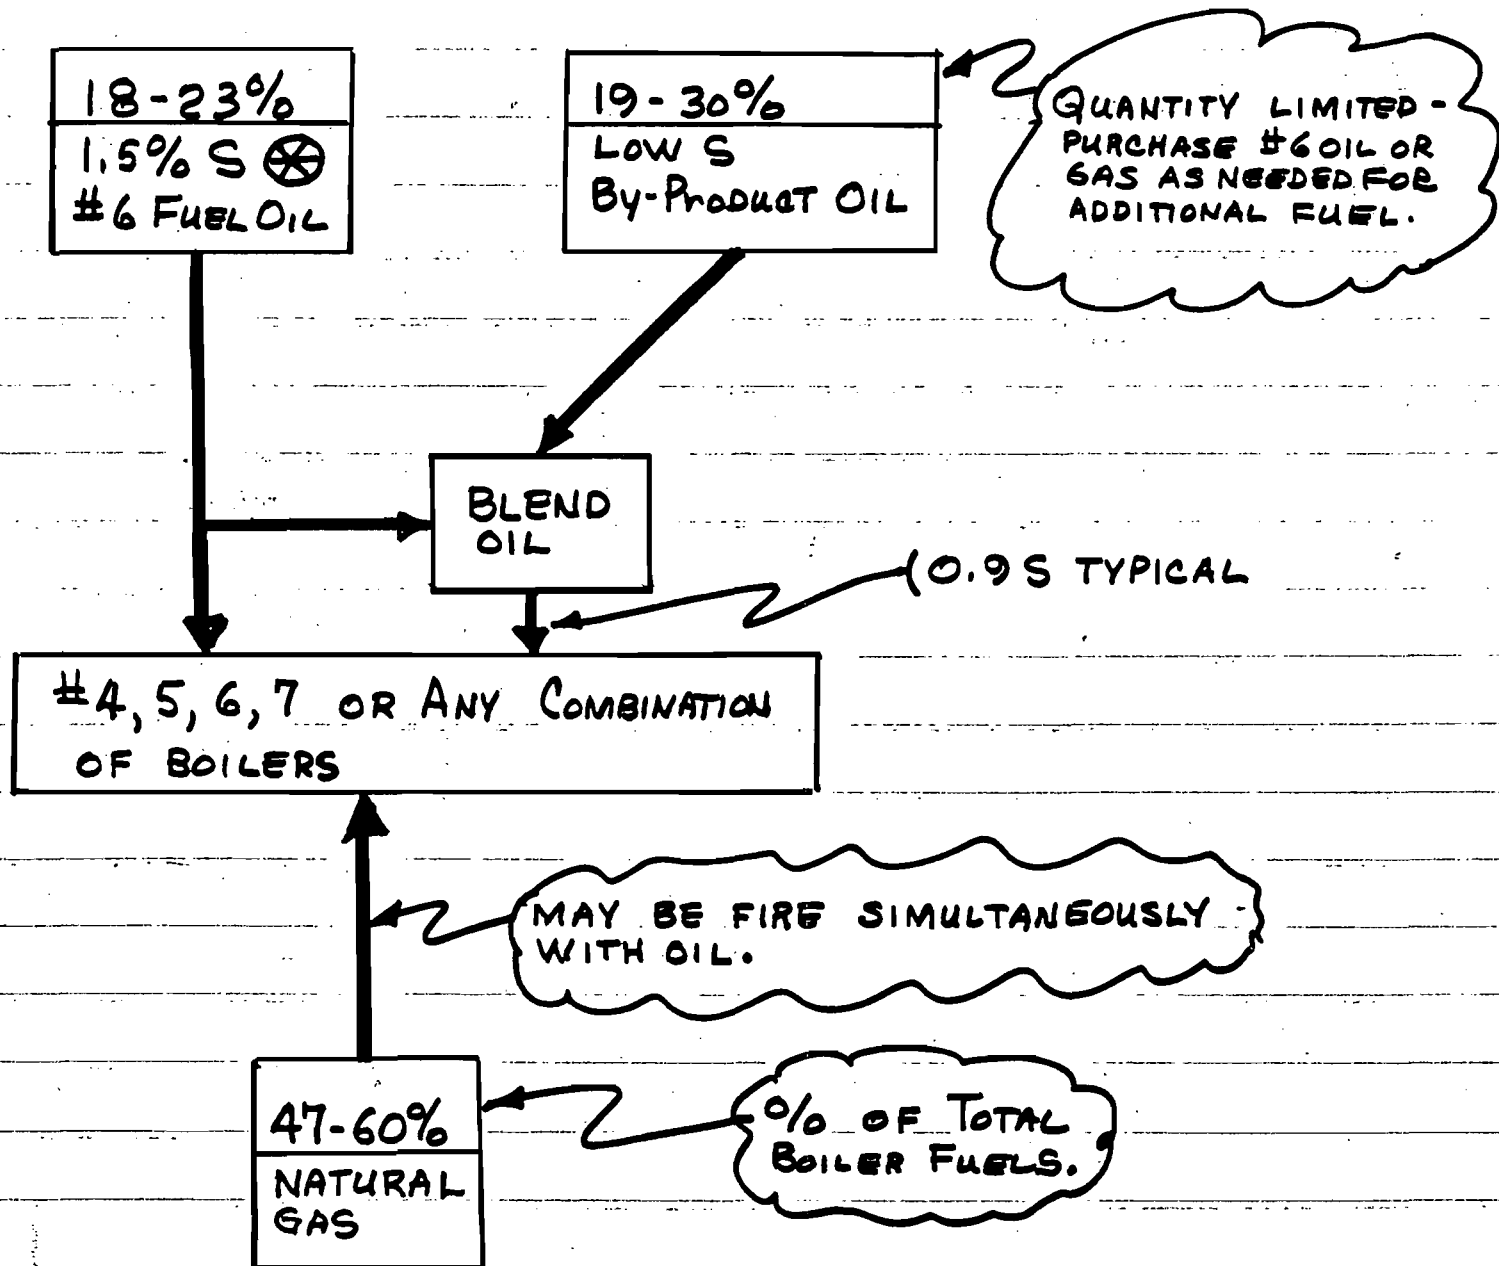 18-23%
1.5% S ⊛
#6 FUEL OIL
19-30%
LOW S
By-PRODUCT OIL
QUANTITY LIMITED-
PURCHASE #6 OIL OR
GAS AS NEEDED FOR
ADDITIONAL FUEL.
BLEND
OIL
(0.9 S TYPICAL
#4, 5, 6, 7 OR ANY COMBINATION
OF BOILERS
MAY BE FIRE SIMULTANEOUSLY
WITH OIL.
47-60%
NATURAL
GAS
% OF TOTAL
BOILER FUELS.